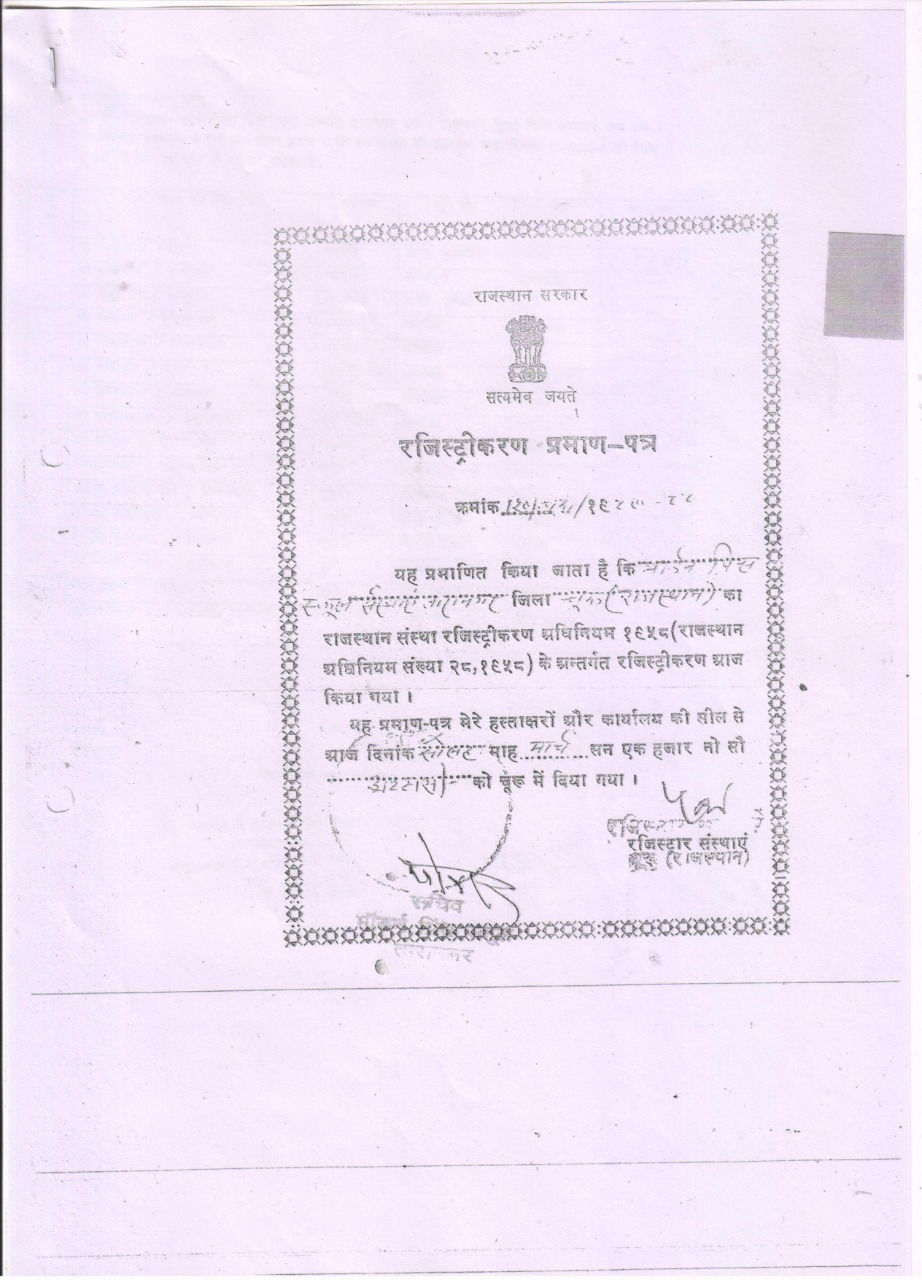 राजस्थान सरकार
सत्यमेव जयते
रजिस्ट्रीकरण प्रमाण-पत्र
क्रमांक /१९
यह प्रमाणित किया जाता है कि
स्कूल जिला चूरू (राजस्थान) का
राजस्थान संस्था रजिस्ट्रीकरण अधिनियम १९५८(राजस्थान
अधिनियम संख्या २८,१९५८) के अन्तर्गत रजिस्ट्रीकरण आज
किया गया ।
यह प्रमाण-पत्र मेरे हस्ताक्षरों और कार्यालय की सील से
आज दिनांक सोलह माह मार्च सन एक हजार नो सौ
को चूरू में दिया गया ।
रजिस्टार संस्थाएं
चूरू (राजस्थान)
सचिव
तारानगर